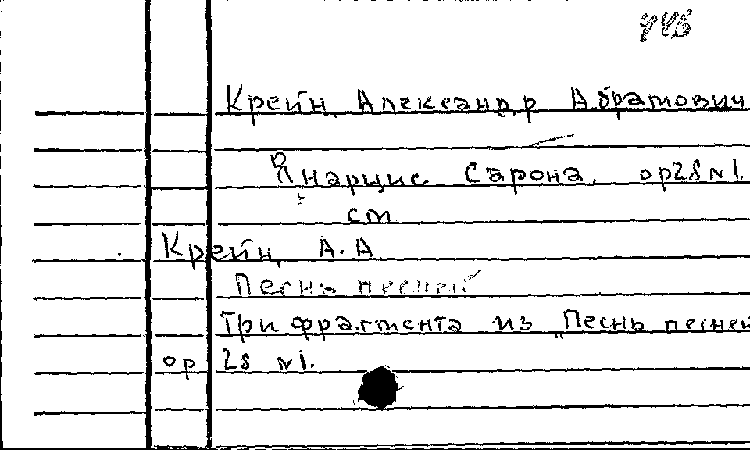 445
Крейн Александр Абрамович
Я нарцис Сарона. op 28 N1.
см
Крейн, А. А
Песнь песней
Три фрагмента из "Песнь песней
op 28 N1.